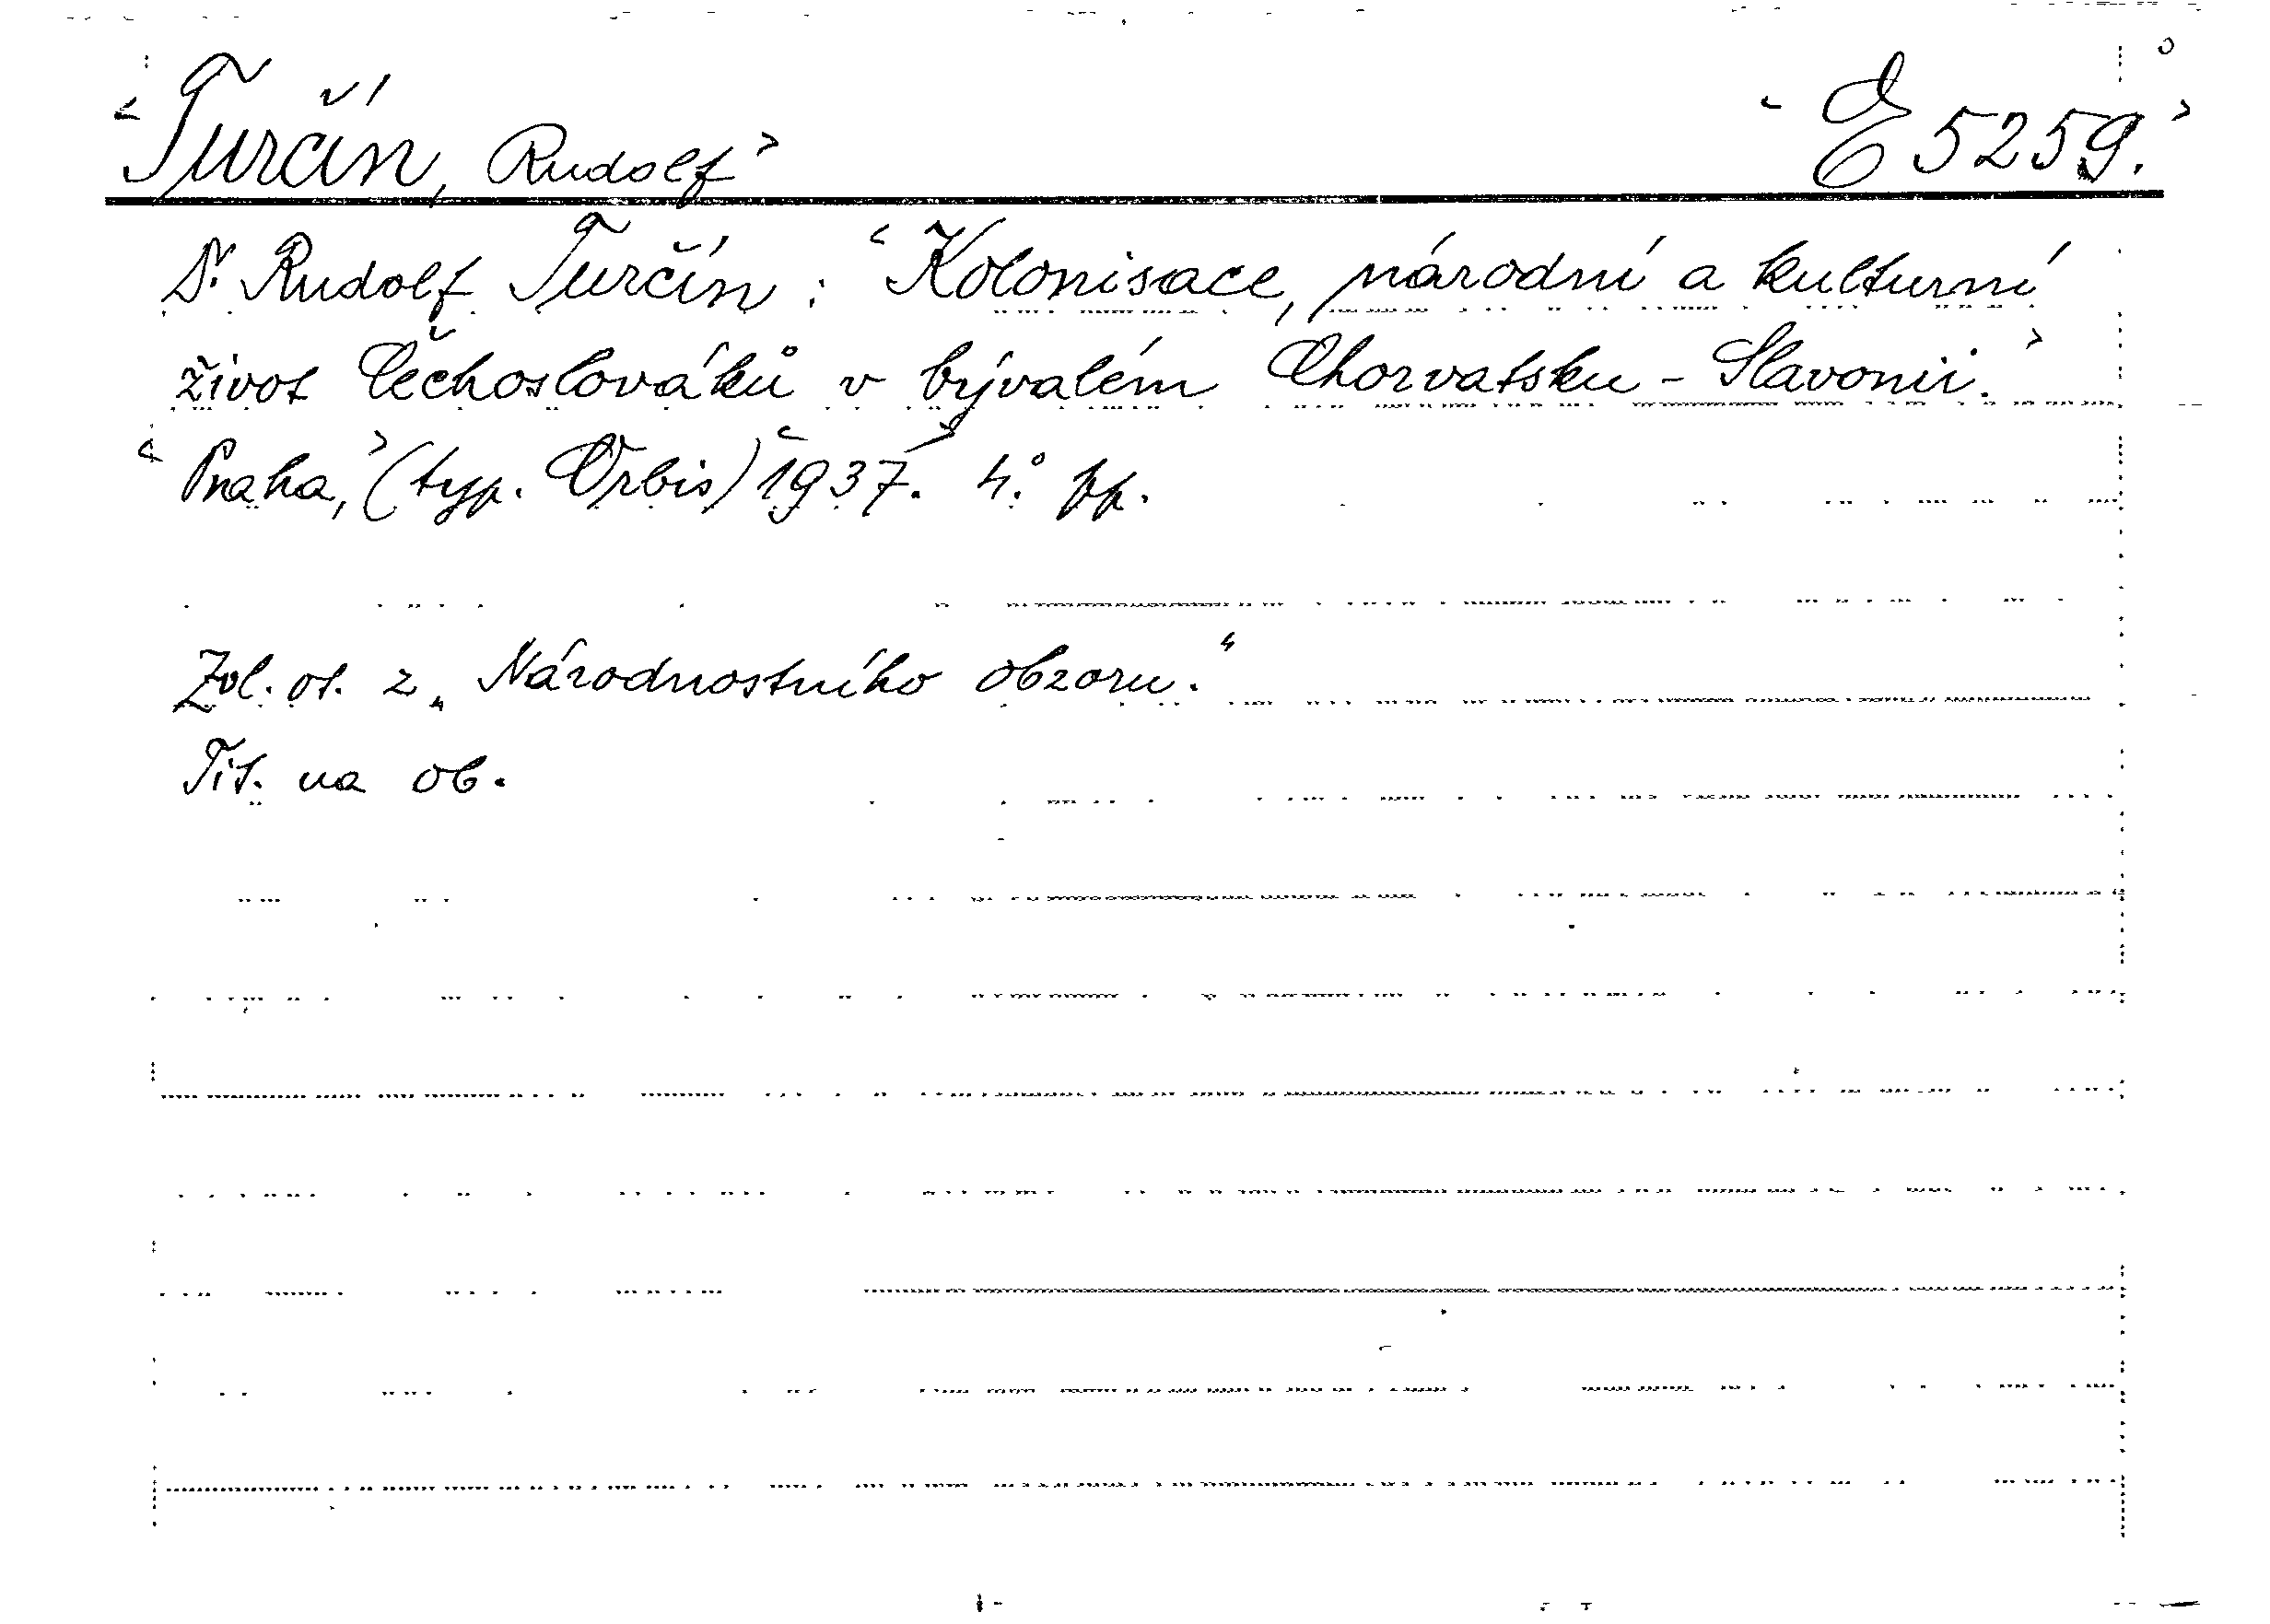 Turčín, Rudolf E 5259.
Dr Rudolf Turčín: Kolonisace, národní a kulturní
život Čechoslováků v bývalém Chorvatsku-Slavonii.
Praha, (typ. Orbis) 1937. 4° pp.
Zvl. ot. z „Národnostního obzoru.“
Tit. na ob.